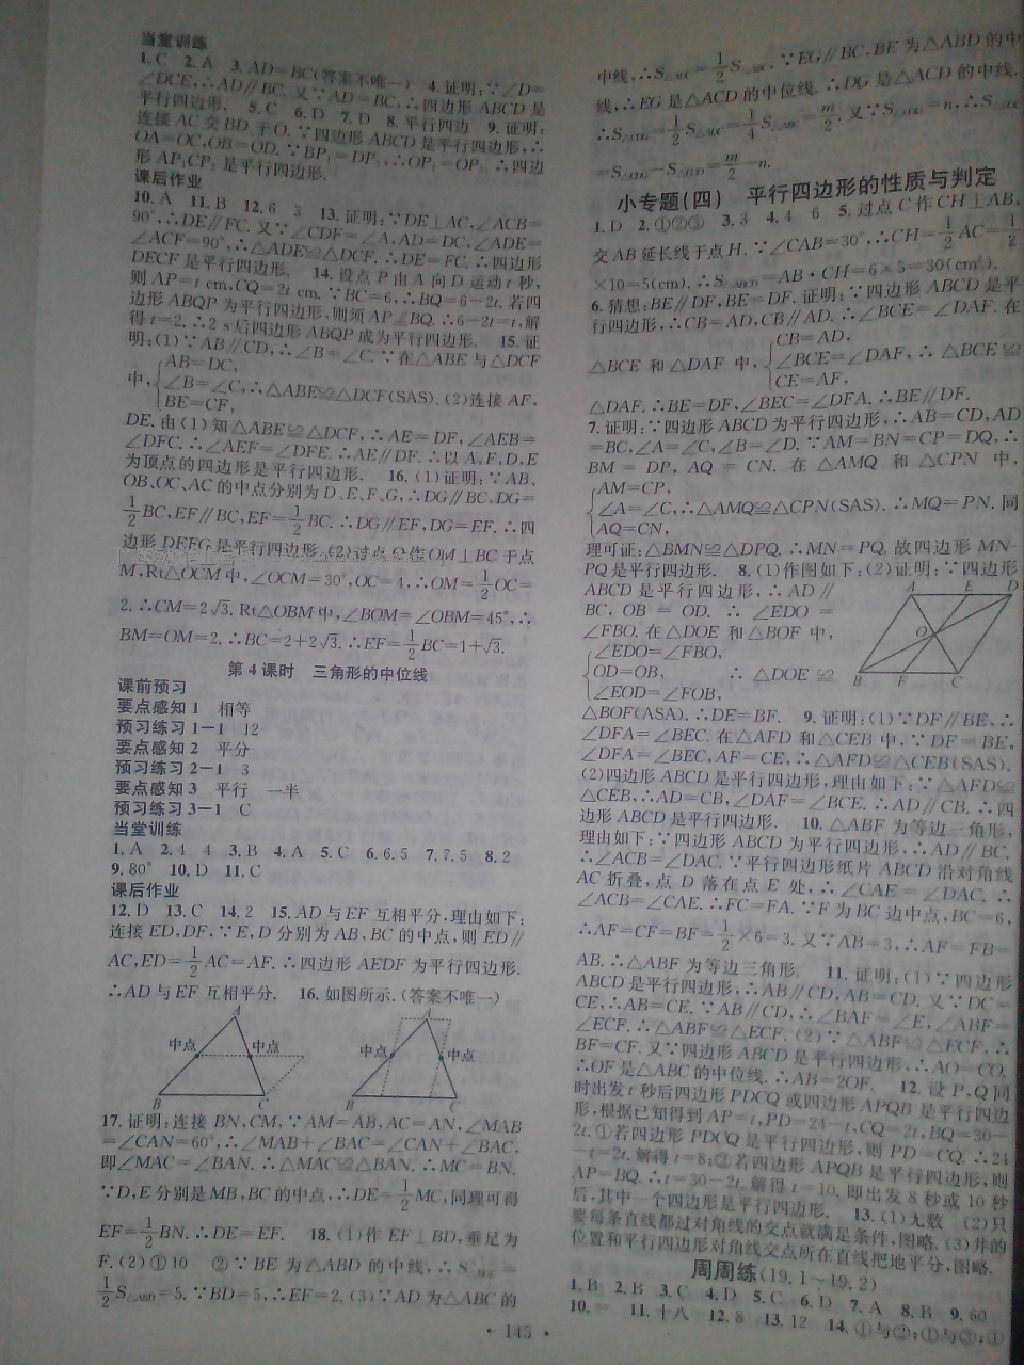 当堂训练
1.C 2.A 3.AD=BC(答案不唯一) 4.证明:∵∠D=
∠DCE,∴AD∥BC.又∵AD=BC,∴四边形 ABCD 是
平行四边形. 5.C 6.D 7.D 8.平行四边 9.证明:
连接 AC 交 BD 于 O.∵四边形 ABCD 是平行四边形,∴
OA=OC,OB=OD.∵BP₁=DP₂,∴OP₁=OP₂.∴四边
形 AP₁CP₂ 是平行四边形.
课后作业
10.A 11.B 12.6 3 13.证明:∵DE⊥AC,∠ACB=
90°,∴DE∥FC.又∵∠CDF=∠A,AD=DC,∠ADE=
∠ACF=90°,∴△ADE≌△DCF.∴DE=FC.∴四边形
DECF 是平行四边形. 14.设点 P 由 A 向 D 运动 t 秒,
则 AP=t cm,CQ=2t cm.∵BC=6,∴BQ=6-2t.若四
边形 ABQP 为平行四边形,则须 AP∥BQ.∴6-2t=t,解
得 t=2.∴2 s 后四边形 ABQP 成为平行四边形. 15.证
明:(1)∵AB∥CD,∴∠B=∠C.∵在△ABE 与△DCF
中,{AB=DC,
∠B=∠C,∴△ABE≌△DCF(SAS).(2)连接 AF,
BE=CF,
DE.由(1)知△ABE≌△DCF,∴AE=DF,∠AEB=
∠DFC.∴∠AEF=∠DFE.∴AE∥DF.∴以 A、F、D、E
为顶点的四边形是平行四边形. 16.(1)证明:∵AB、
OB、OC、AC 的中点分别为 D、E、F、G,∴DG∥BC,DG=
1/2 BC,EF∥BC,EF=1/2 BC.∴DG∥EF,DG=EF.∴四
边形 DEFG 是平行四边形.(2)过点 O 作 OM⊥BC 于点
M,Rt△OCM 中,∠OCM=30°,OC=4,∴OM=1/2 OC=
2.∴CM=2√3.Rt△OBM 中,∠BOM=∠OBM=45°,∴
BM=OM=2.∴BC=2+2√3.∴EF=1/2 BC=1+√3.
第 4 课时 三角形的中位线
课前预习
要点感知 1 相等
预习练习 1-1 12
要点感知 2 平分
预习练习 2-1 3
要点感知 3 平行 一半
预习练习 3-1 C
当堂训练
1.A 2.4 4 3.B 4.A 5.C 6.6.5 7.7.5 8.2
9.80° 10.D 11.C
课后作业
12.D 13.C 14.2 15.AD 与 EF 互相平分,理由如下:
连接 ED,DF,∵E,D 分别为 AB,BC 的中点,则 ED∥
AC,ED=1/2 AC=AF.∴四边形 AEDF 为平行四边形.
∴AD 与 EF 互相平分. 16.如图所示.(答案不唯一)
A A
中点 中点 中点 中点
B C B C
17.证明:连接 BN,CM,∵AM=AB,AC=AN,∠MAB
=∠CAN=60°,∴∠MAB+∠BAC=∠CAN+∠BAC.
即∠MAC=∠BAN.∴△MAC≌△BAN.∴MC=BN.
∵D,E 分别是 MB,BC 的中点,∴DE=1/2 MC,同理可得
EF=1/2 BN.∴DE=EF. 18.(1)作 EF⊥BD,垂足为
F.(2)①10 ②∵BE 为△ABD 的中线,∴S
1/2 S△ABD=5.∵BD=5,∴EF=2.(3)∵AD 为△ABC 的
中线,∴S△ADC=1/2 S△ABC.∵EG∥BC,BE 为△ABD 的中
线,∴EG 是△ACD 的中位线.∴DG 是△ACD 的中线.
∴S△CDG=1/2 S△ADC=1/4 S△ABC=m/2,又∵S =n,∴S
=S△CDG-S =m/2-n.
小专题(四) 平行四边形的性质与判定
1.D 2.①②③ 3.3 4.4 6 5.过点 C 作 CH⊥AB,
交 AB 延长线于点 H.∵∠CAB=30°,∴CH=1/2 AC=1/2
×10=5(cm).∴S =AB·CH=6×5=30(cm²).
6.猜想:BE∥DF,BE=DF.证明:∵四边形 ABCD 是平
行四边形,∴CB=AD,CB∥AD.∴∠BCE=∠DAF.在
△BCE 和△DAF 中,{CB=AD,
∠BCE=∠DAF,∴△BCE≌
CE=AF,
△DAF.∴BE=DF,∠BEC=∠DFA.∴BE∥DF.
7.证明:∵四边形 ABCD 为平行四边形,∴AB=CD,AD
=BC,∠A=∠C,∠B=∠D.∵AM=BN=CP=DQ,∴
BM=DP,AQ=CN.在△AMQ 和△CPN 中,
{AM=CP,
∠A=∠C,∴△AMQ≌△CPN(SAS).∴MQ=PN.同
AQ=CN,
理可证:△BMN≌△DPQ.∴MN=PQ.故四边形 MN-
PQ 是平行四边形. 8.(1)作图如下:(2)证明:∵四边形
ABCD 是平行四边形,∴AD∥
BC,OB=OD.∴∠EDO=
∠FBO.在△DOE 和△BOF 中,
{∠EDO=∠FBO,
OD=OB, ∴△DOE≌
∠EOD=∠FOB,
A E D
O
B F C
△BOF(ASA).∴DE=BF. 9.证明:(1)∵DF∥BE,∴
∠DFA=∠BEC.在△AFD 和△CEB 中,∵DF=BE,
∠DFA=∠BEC,AF=CE,∴△AFD≌△CEB(SAS).
(2)四边形 ABCD 是平行四边形,理由如下:∵△AFD≌
△CEB,∴AD=CB,∠DAF=∠BCE.∴AD∥CB.∴四
边形 ABCD 是平行四边形. 10.△ABF 为等边三角形,
理由如下:∵四边形 ABCD 为平行四边形,∴AD∥BC.
∴∠ACB=∠DAC.∵平行四边形纸片 ABCD 沿对角线
AC 折叠,点 D 落在点 E 处,∴∠CAE=∠DAC.∴
∠ACB=∠CAE.∴FC=FA.∵F 为 BC 边中点,BC=6,
∴AF=CF=BF=1/2×6=3.又∵AB=3,∴AF=FB=
AB.∴△ABF 为等边三角形. 11.证明:(1)∵四边形
ABCD 是平行四边形,∴AB∥CD,AB=CD.又∵DC=
CE,∴AB=CE.∵AB∥CD,∴∠BAF=∠E,∠ABF=
∠ECF.∴△ABF≌△ECF.(2)∵△ABF≌△ECF,∴
BF=CF.又∵四边形 ABCD 是平行四边形,∴AO=CO.
∴OF 是△ABC 的中位线.∴AB=2OF. 12.设 P,Q 同
时出发 t 秒后四边形 PDCQ 或四边形 APQB 是平行四边
形,根据已知得到 AP=t,PD=24-t,CQ=2t,BQ=30-
2t.①若四边形 PDCQ 是平行四边形,则 PD=CQ.∴24
-t=2t.解得 t=8;②若四边形 APQB 是平行四边形,则
AP=BQ.∴t=30-2t.解得 t=10.即出发 8 秒或 10 秒
后,其中一个四边形是平行四边形. 13.(1)无数 (2)只
要每条直线都过对角线的交点就满足条件,图略.(3)井的
位置和平行四边形对角线交点所在直线把地平分,图略.
周周练(19.1~19.2)
1.B 2.B 3.C 4.D 5.C 6.D 7.A 8.B 9.60
10.= 11.十八 12.8 13.12 14.①与②;①与③;①
· 145 ·